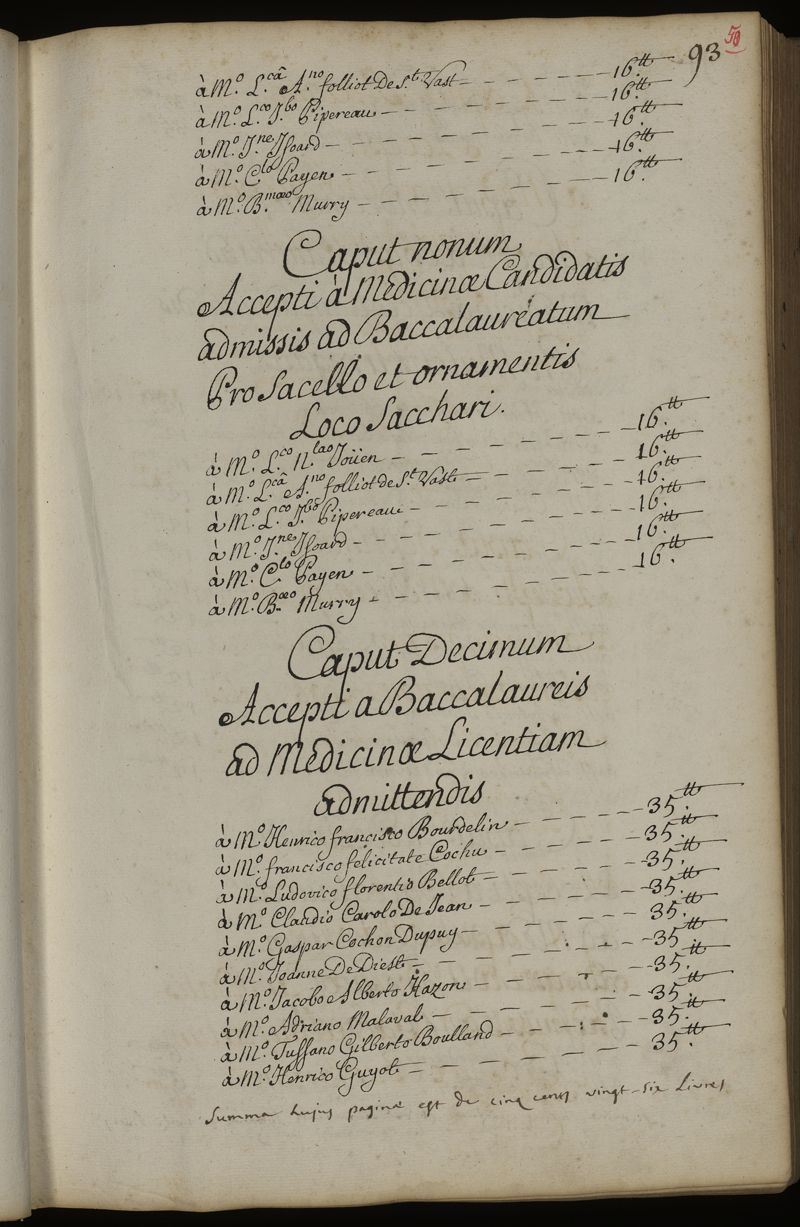 93 50
à M.º L.câ A.no folliot De S.t Vast — 16.tt
à M.º L.co J.bo Pipereau — 16.tt
à M.º J.ne Isoard — 16.tt
à M.º C.lo Payen — 16.tt
à M.º B.mæo Murry — 16.tt
Caput nonum
Accepti à Medicinæ Candidatis
admissis ad Baccalaureatum
Pro Sacello et ornamentis
Loco Sacchari.
à M.º L.co N.lao Joüen — 16.tt
à M.º L.câ A.no folliot de S.t Vast — 16.tt
à M.º L.co J.bo Pipereau — 16.tt
à M.º J.ne Isoard — 16.tt
à M.º C.lo Payen — 16.tt
à M.º B.æo Murry — 16.tt
Caput Decimum
Accepti a Baccalaureis
ad Medicinæ Licentiam
admittendis
à M.º Henrico francisco Bourdelin — 35.tt
à M.º francisco felicitate Cochu — 35.tt
à M.º Ludovico florentio Bellot — 35.tt
à M.º Claudio Carolo De Jean — 35.tt
à M.º Gaspar Cochon Dupuy — 35.tt
à M.º Joanne De Diest — 35.tt
à M.º Jacobo Alberto Hazon — 35.tt
à M.º Adriano Malaval — 35.tt
à M.º Tussano Gilberto Boulland — 35.tt
à M.º Henrico Guyot — 35.tt
Summa hujus paginæ est de cinq cents vingt-six Livres